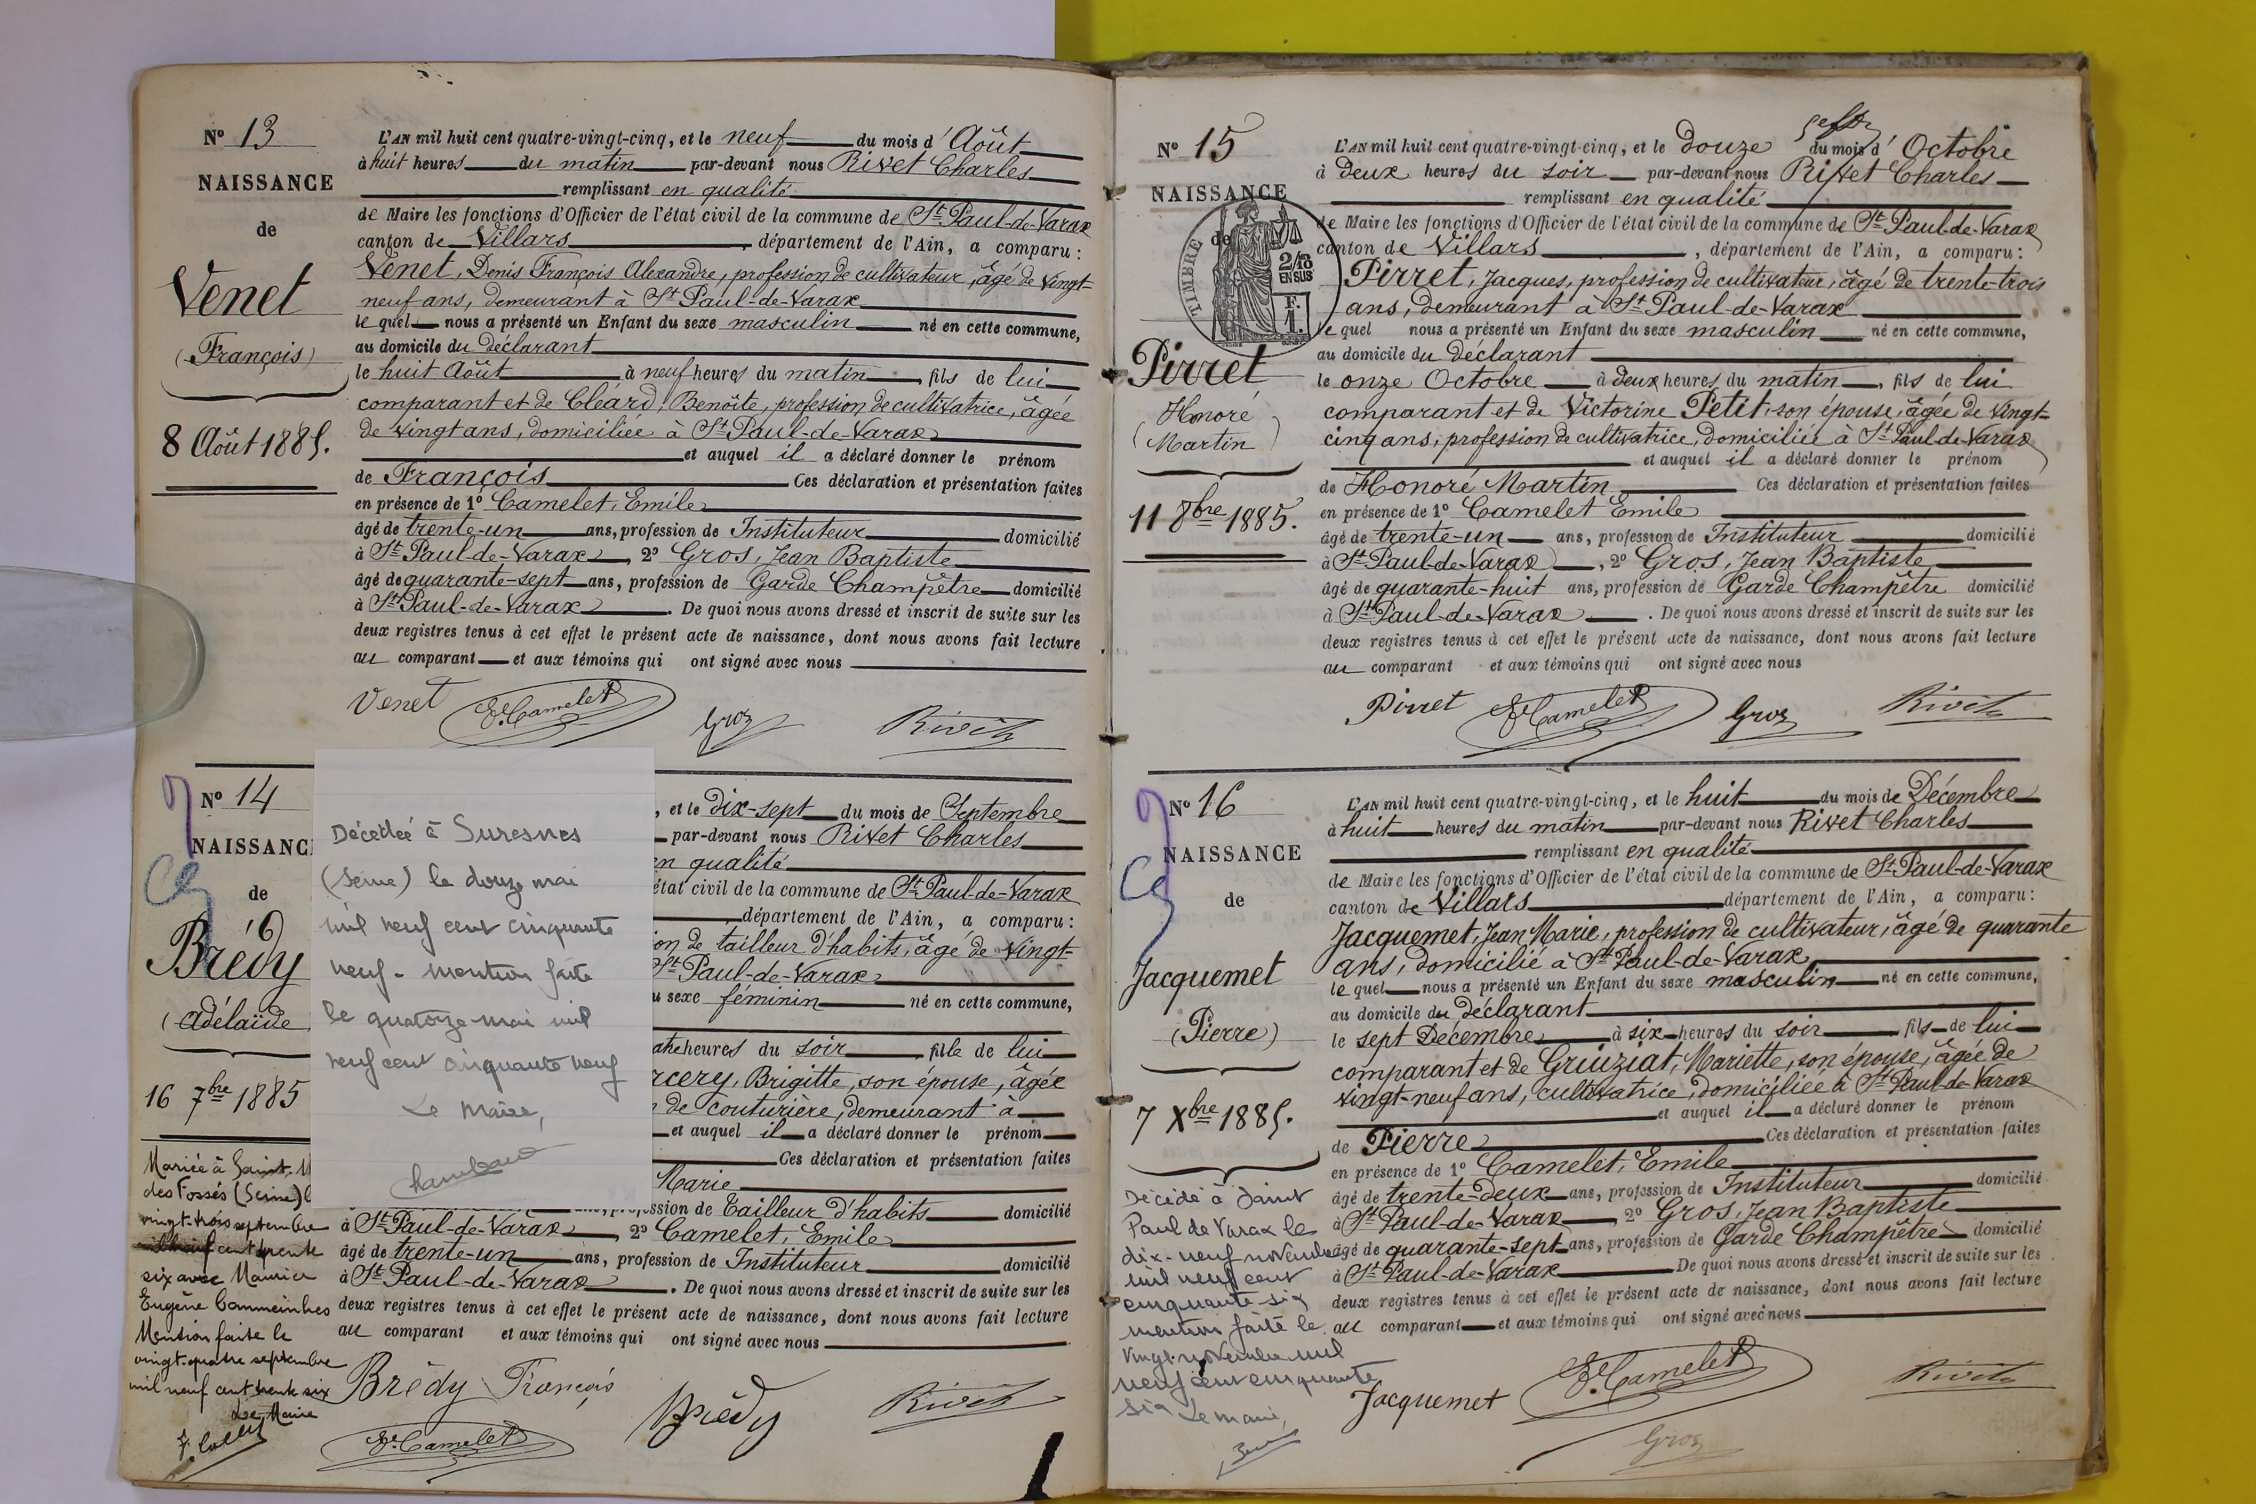 N° 13
NAISSANCE
de
Venet
(François)
8 Août 1885.
L'AN mil huit cent quatre-vingt-cinq, et le neuf du mois d'Août
à huit heures du matin par-devant nous Rivet Charles
remplissant en qualité
de Maire les fonctions d'Officier de l'état civil de la commune de St Paul-de-Varax
canton de Villars, département de l'Ain, a comparu:
Venet, Denis François Alexandre, profession de cultivateur, âgé de vingt-
neuf ans, demeurant à St Paul-de-Varax
le quel nous a présenté un Enfant du sexe masculin né en cette commune,
au domicile du déclarant
le huit Août à neuf heures du matin, fils de lui
comparant et de Cléard, Benoîte, profession de cultivatrice, âgée
de vingt ans, domiciliée à St Paul-de-Varax
et auquel il a déclaré donner le prénom
de François Ces déclaration et présentation faites
en présence de 1° Camelet, Emile
âgé de trente-un ans, profession de Instituteur domicilié
à St Paul-de-Varax, 2° Gros, Jean Baptiste
âgé de quarante-sept ans, profession de Garde Champêtre domicilié
à St Paul-de-Varax. De quoi nous avons dressé et inscrit de suite sur les
deux registres tenus à cet effet le présent acte de naissance, dont nous avons fait lecture
au comparant et aux témoins qui ont signé avec nous
Venet E. Camelet Gros Rivet
N° 14
NAISSANC
de
Brédy
(Adélaïde
16 7bre 1885
Mariée à Saint-M
des Fossés (Seine) l
vingt-trois septembre
mil neuf cent trente
six avec Maurice
Eugène
Mention faite le
vingt-quatre septembre
mil neuf cent trente six
Le Maire
Décédée à Suresnes
(Seine) le douze mai
mil neuf cent cinquante
neuf - mention faite
le quatorze mai mil
neuf cent cinquante neuf
Le Maire,
, et le dix-sept du mois de Septembre
par-devant nous Rivet Charles
en qualité
état civil de la commune de St Paul-de-Varax
département de l'Ain, a comparu:
ion de tailleur d'habits, âgé de vingt-
St Paul-de-Varax
u sexe féminin né en cette commune,
heures du soir, fille de lui
rcery, Brigitte, son épouse, âgée
de couturière, demeurant à
et auquel il a déclaré donner le prénom
Ces déclaration et présentation faites
Marie
ssion de Tailleur d'habits domicilié
à St Paul-de-Varax, 2° Camelet, Emile
âgé de trente-un ans, profession de Instituteur domicilié
à St Paul-de-Varax. De quoi nous avons dressé et inscrit de suite sur les
deux registres tenus à cet effet le présent acte de naissance, dont nous avons fait lecture
au comparant et aux témoins qui ont signé avec nous
Brédy François Brédy Rivet
E. Camelet
N° 15
NAISSANCE
de
TIMBRE
2/10
EN SUS
F.
1.
Pirret
(Honoré
Martin)
11 8bre 1885.
L'AN mil huit cent quatre-vingt-cinq, et le douze du mois d'Octobre
à deux heures du soir par-devant nous Rivet Charles
remplissant en qualité
de Maire les fonctions d'Officier de l'état civil de la commune de St Paul-de-Varax
canton de Villars, département de l'Ain, a comparu:
Pirret, Jacques, profession de cultivateur, âgé de trente-trois
ans, demeurant à St Paul-de-Varax
le quel nous a présenté un Enfant du sexe masculin né en cette commune,
au domicile du déclarant
le onze Octobre à deux heures du matin, fils de lui
comparant et de Victorine Petit, son épouse, âgée de vingt-
cinq ans, profession de cultivatrice, domiciliée à St Paul-de-Varax
et auquel il a déclaré donner le prénom
de Honoré Martin Ces déclaration et présentation faites
en présence de 1° Camelet Emile
âgé de trente-un ans, profession de Instituteur domicilié
à St Paul-de-Varax, 2° Gros, Jean Baptiste
âgé de quarante-huit ans, profession de Garde Champêtre domicilié
à St Paul-de-Varax. De quoi nous avons dressé et inscrit de suite sur les
deux registres tenus à cet effet le présent acte de naissance, dont nous avons fait lecture
au comparant et aux témoins qui ont signé avec nous
Pirret E. Camelet Gros Rivet
N° 16
NAISSANCE
de
Jacquemet
(Pierre)
7 Xbre 1885.
Décédé à Saint
Paul de Varax le
dix-neuf novembre
mil neuf cent
cinquante-six
mention faite le
vingt novembre mil
neuf cent cinquante
six Le Maire,
L'AN mil huit cent quatre-vingt-cinq, et le huit du mois de Décembre
à huit heures du matin par-devant nous Rivet Charles
remplissant en qualité
de Maire les fonctions d'Officier de l'état civil de la commune de St Paul-de-Varax
canton de Villars département de l'Ain, a comparu:
Jacquemet, Jean Marie, profession de cultivateur, âgé de quarante
ans, domicilié à St Paul-de-Varax,
le quel nous a présenté un Enfant du sexe masculin né en cette commune,
au domicile du déclarant
le sept Décembre à six heures du soir fils de lui
comparant et de Gruiziat, Mariette, son épouse, âgée de
vingt-neuf ans, cultivatrice, domiciliée à St Paul-de-Varax
et auquel il a déclaré donner le prénom
de Pierre Ces déclaration et présentation faites
en présence de 1° Camelet, Emile
âgé de trente-deux ans, profession de Instituteur domicilié
à St Paul-de-Varax, 2° Gros, Jean Baptiste
âgé de quarante-sept ans, profession de Garde Champêtre domicilié
à St Paul-de-Varax De quoi nous avons dressé et inscrit de suite sur les
deux registres tenus à cet effet le présent acte de naissance, dont nous avons fait lecture
au comparant et aux témoins qui ont signé avec nous
Jacquemet E. Camelet Rivet
Gros